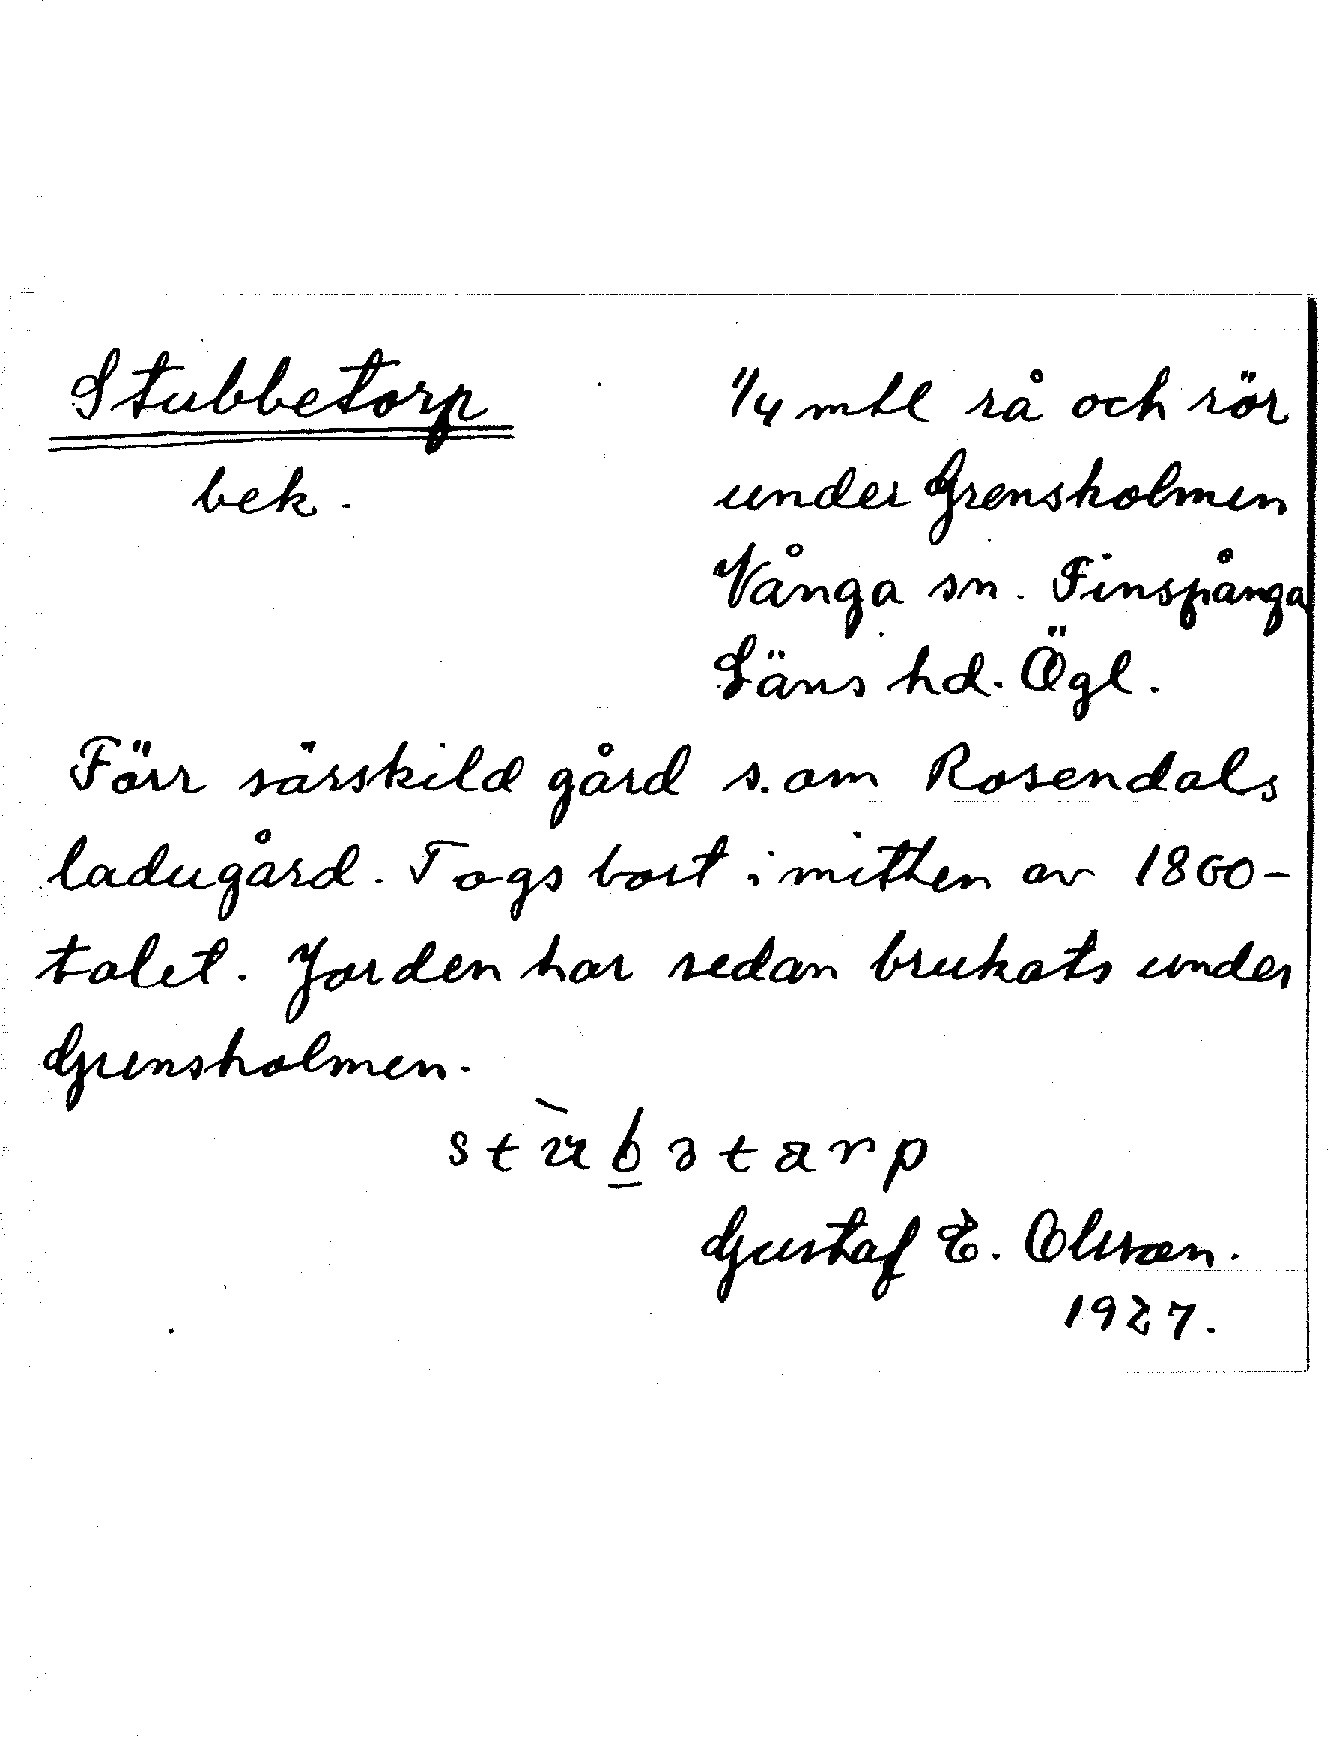 Stubbetorp
bek.
1/4 mtl rå och rör
under Grensholmen
Vånga sn. Finspånga
Läns hd. Ögl.
Förr särskild gård s. om Rosendals
ladugård. Togs bort i mitten av 1860-
talet. Jorden har sedan brukats under
Grensholmen.
Gustaf E. Olsson.
1927.